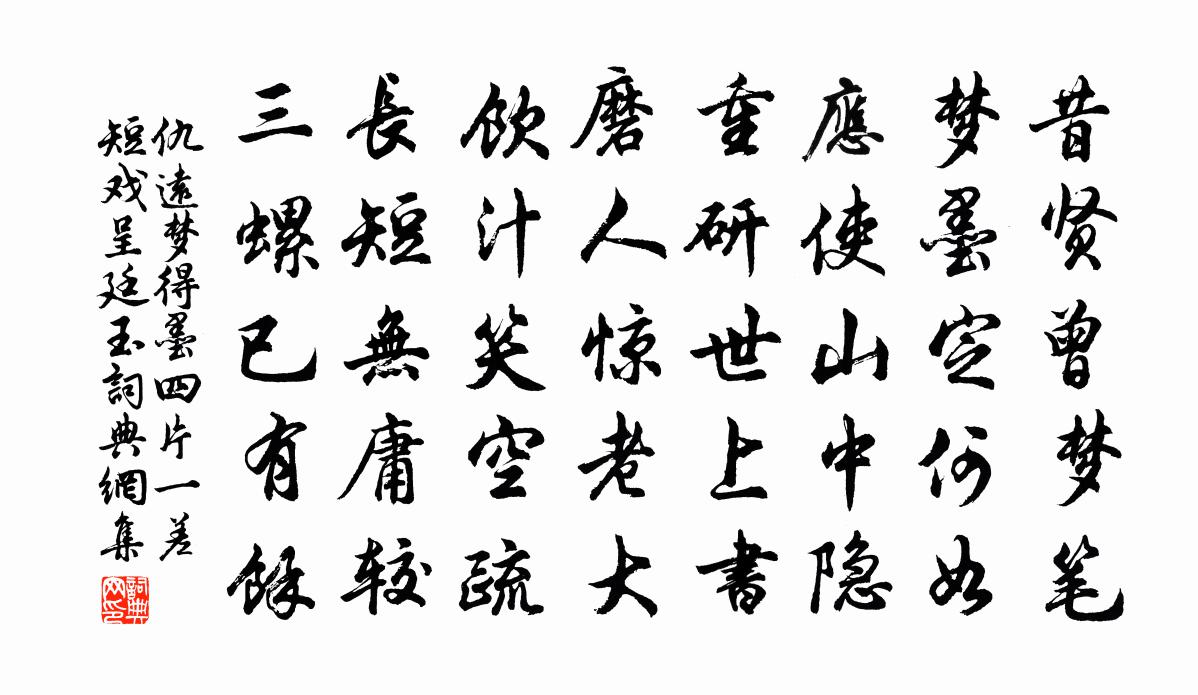 昔贤曾梦笔
梦墨定何如
應使山中隐
重研世上書
磨人惊老大
飲汁笑空疏
長短無庸较
三螺已有餘
仇遠梦得墨四片一差
短戏呈廷玉詞典網集